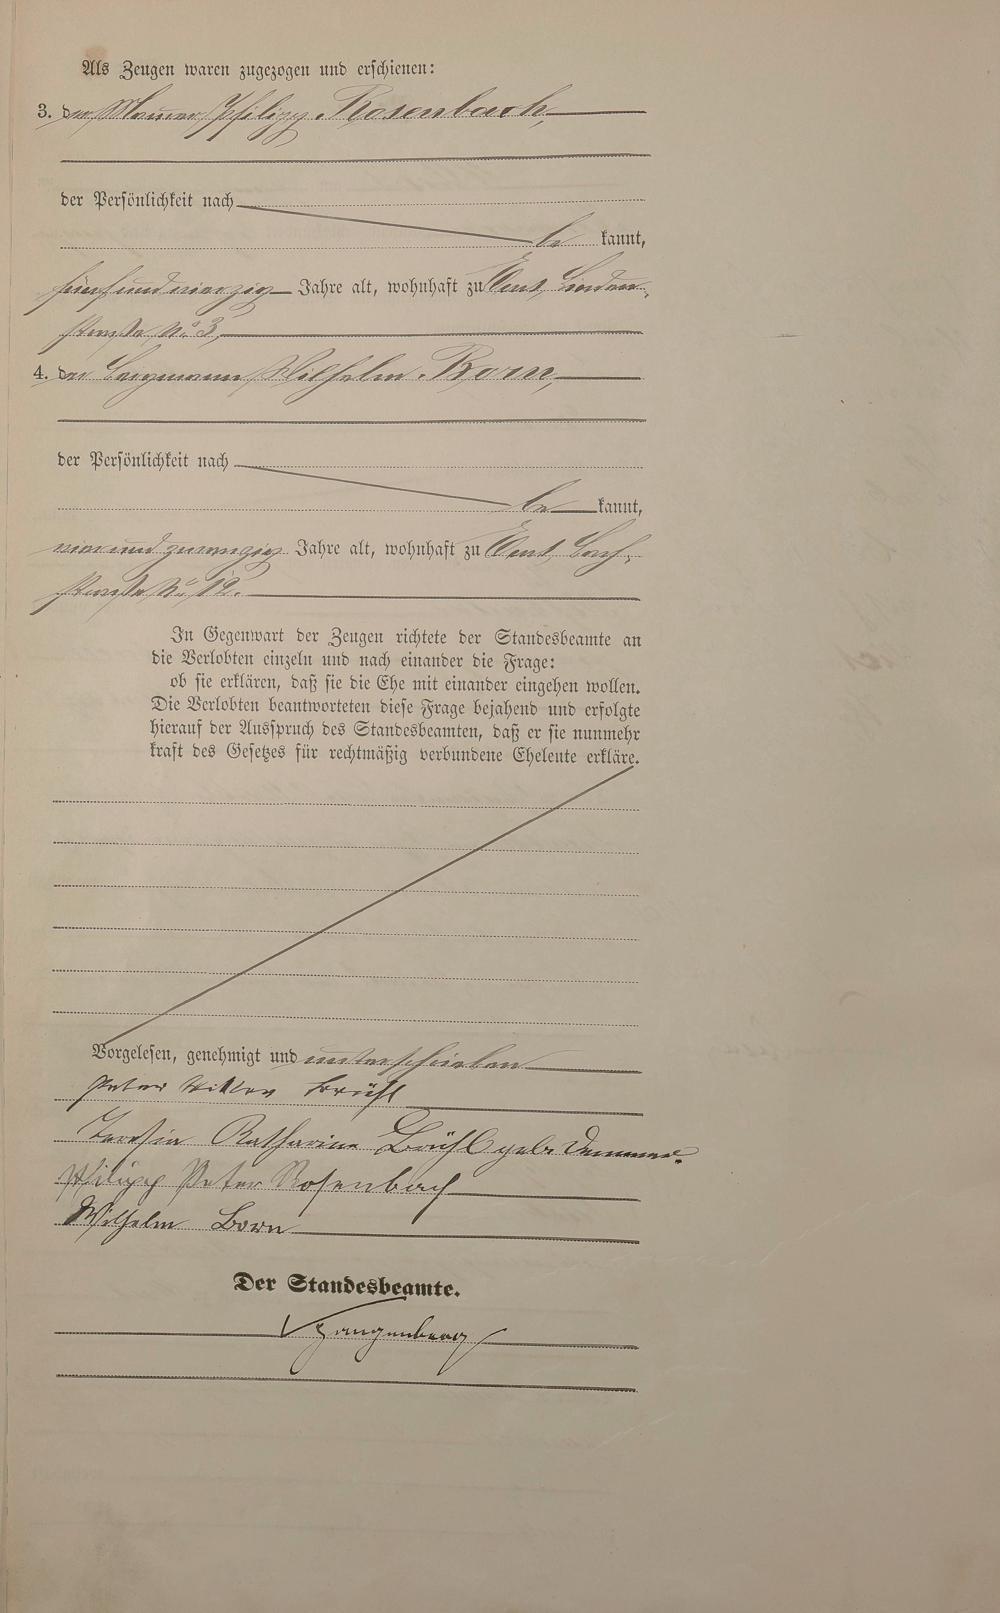 Als Zeugen waren zugezogen und erschienen:
3. der Maurer Philipp Rosenbach,
der Persönlichkeit nach
be kannt,
fünfundvierzig Jahre alt, wohnhaft zu Ems, Linden-
straße No 3,
4. der Bergmann Wilhelm Born,
der Persönlichkeit nach
be kannt,
vierundzwanzig Jahre alt, wohnhaft zu Ems, Bach-
straße No 12.
In Gegenwart der Zeugen richtete der Standesbeamte an
die Verlobten einzeln und nach einander die Frage:
ob sie erklären, daß sie die Ehe mit einander eingehen wollen.
Die Verlobten beantworteten diese Frage bejahend und erfolgte
hierauf der Ausspruch des Standesbeamten, daß er sie nunmehr
kraft des Gesetzes für rechtmäßig verbundene Eheleute erkläre.
Vorgelesen, genehmigt und unterschrieben
Peter Viktor Brühl
Teresia Katharine Brühl geb. Demmer.
Philipp Peter Rosenbach
Wilhelm Born
Der Standesbeamte.
Spangenberg